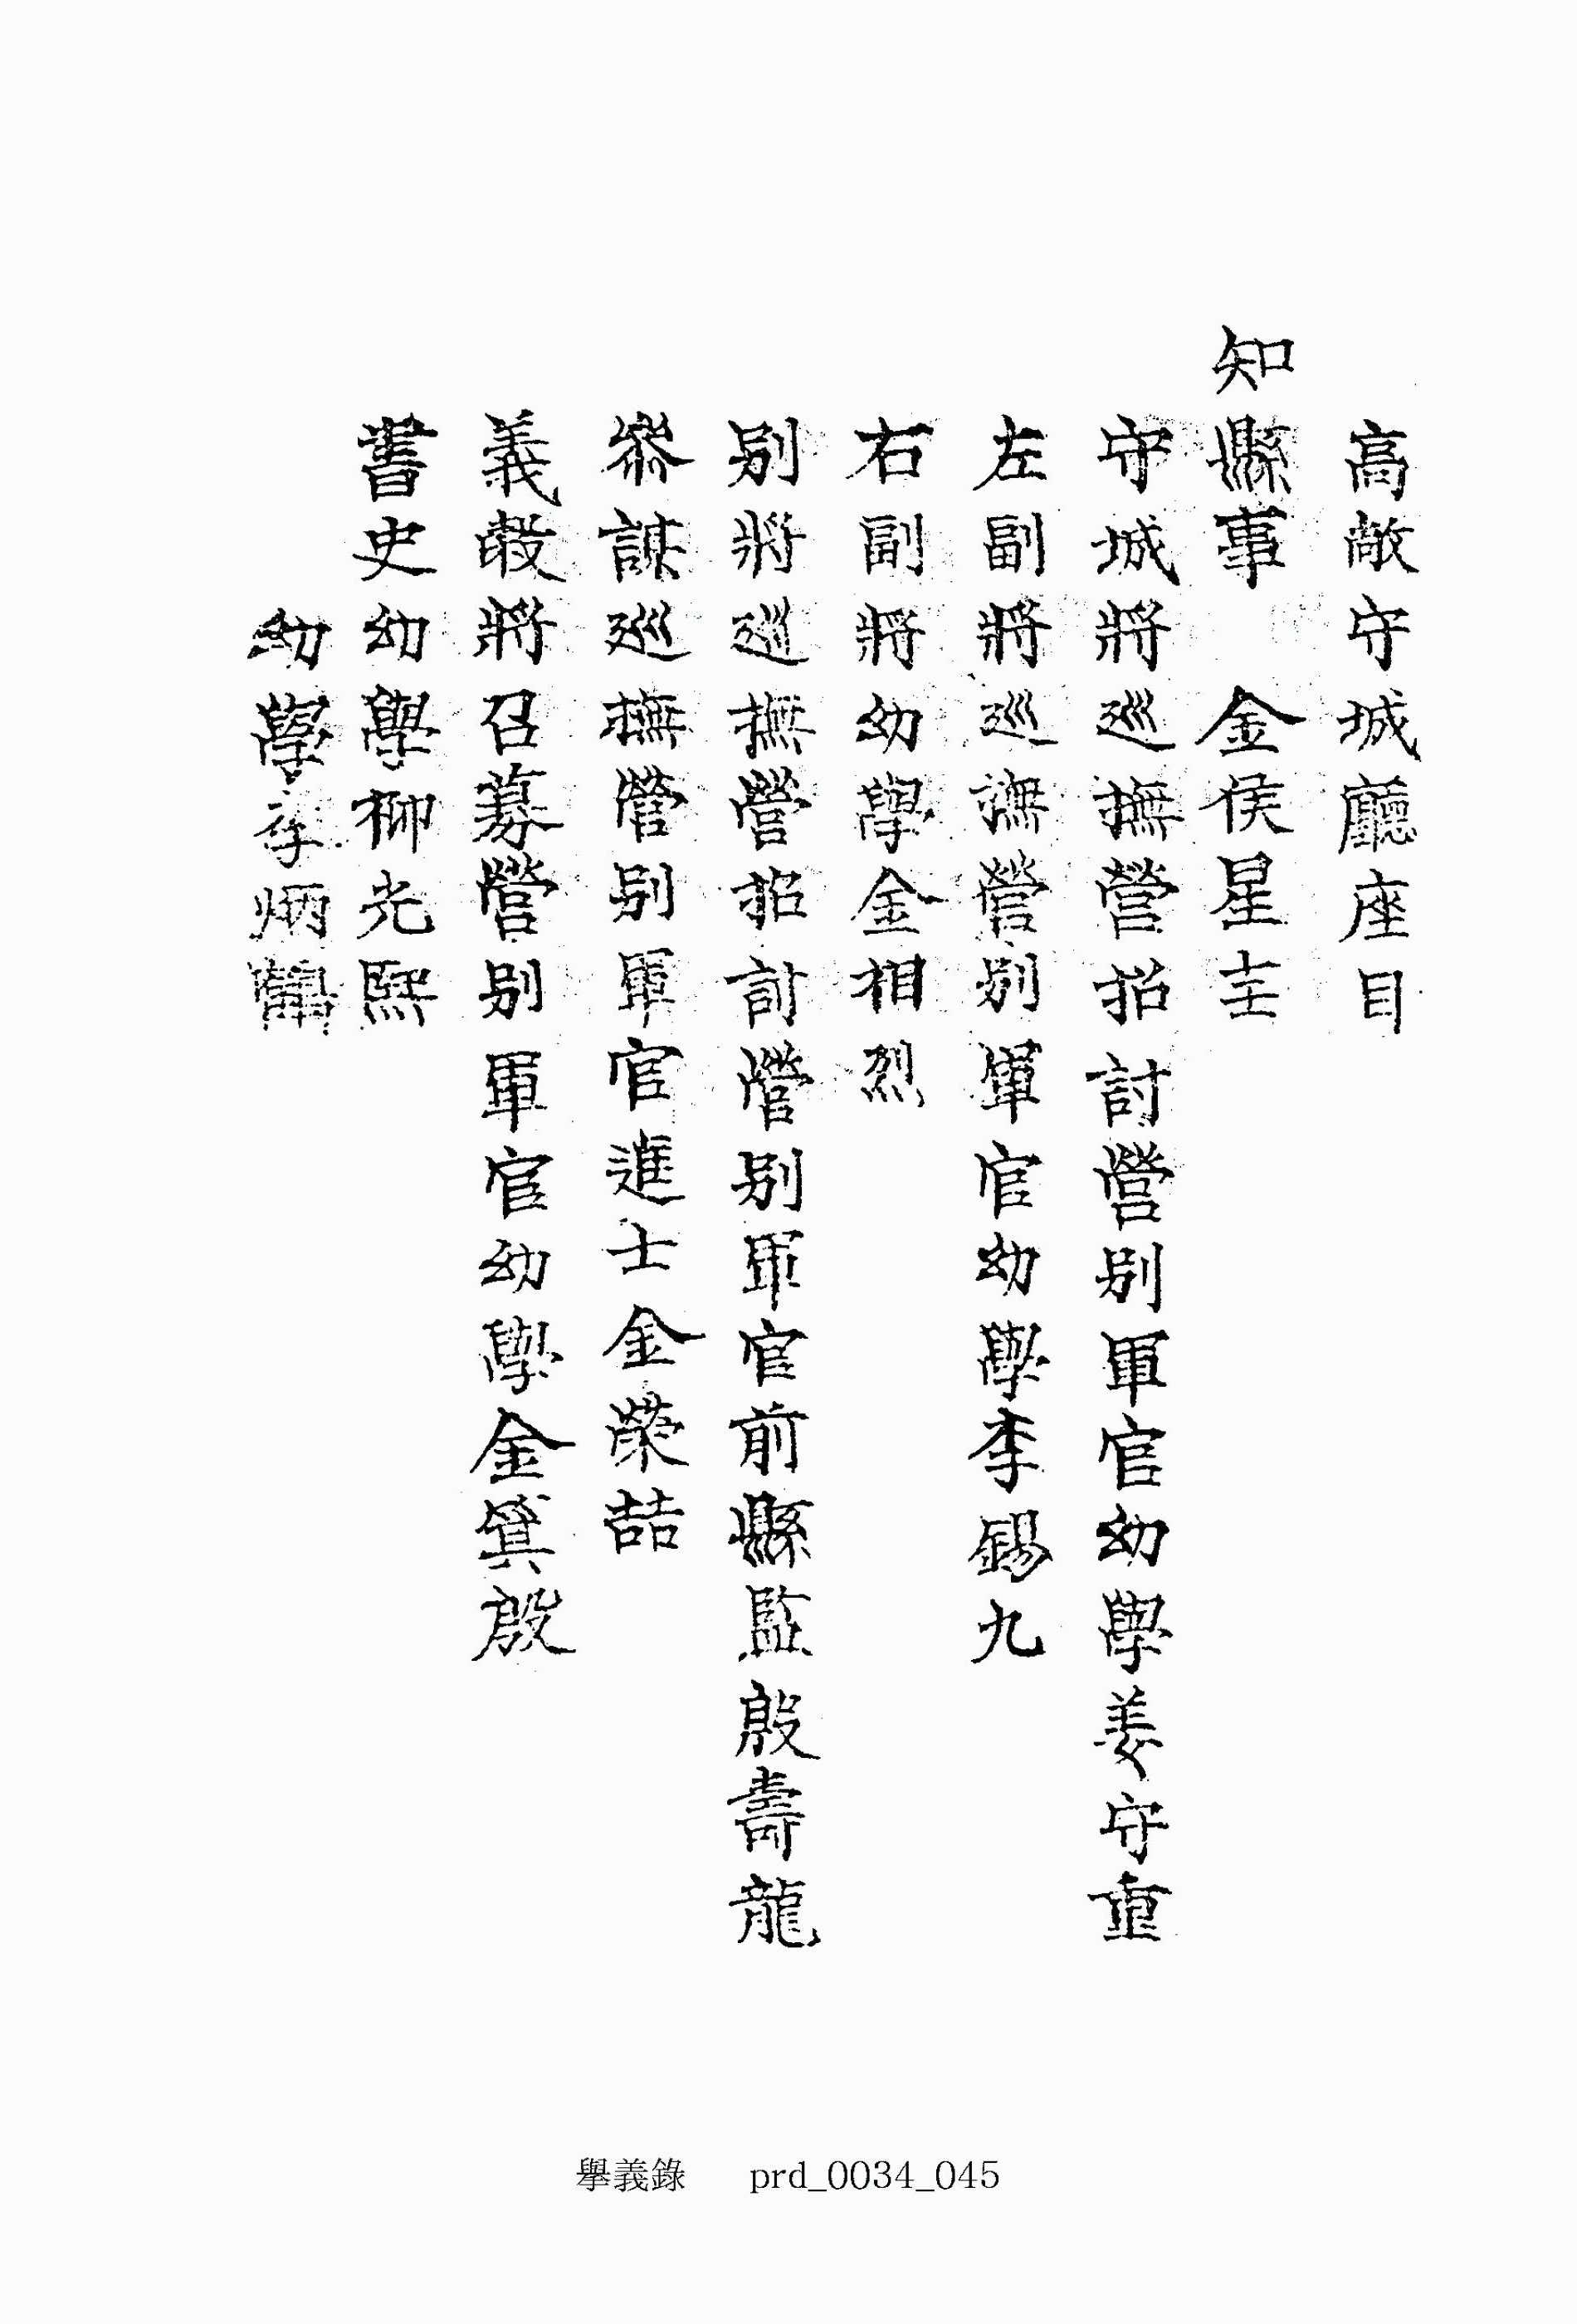 高敞守城廳座目
知縣事 金侯星圭
守城將巡撫營招討營別軍官幼學姜守重
左副將巡撫營別軍官幼學李錫九
右副將幼學金相烈
別將巡撫營招討營別軍官前縣監殷壽龍
叅謀巡撫營別軍官進士金榮喆
義穀將召募營別軍官幼學金箕殷
書史幼學柳光熙
幼學李炳鶴
擧義錄 prd_0034_045